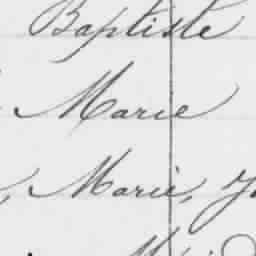 Baptiste
Marie
, Marie,